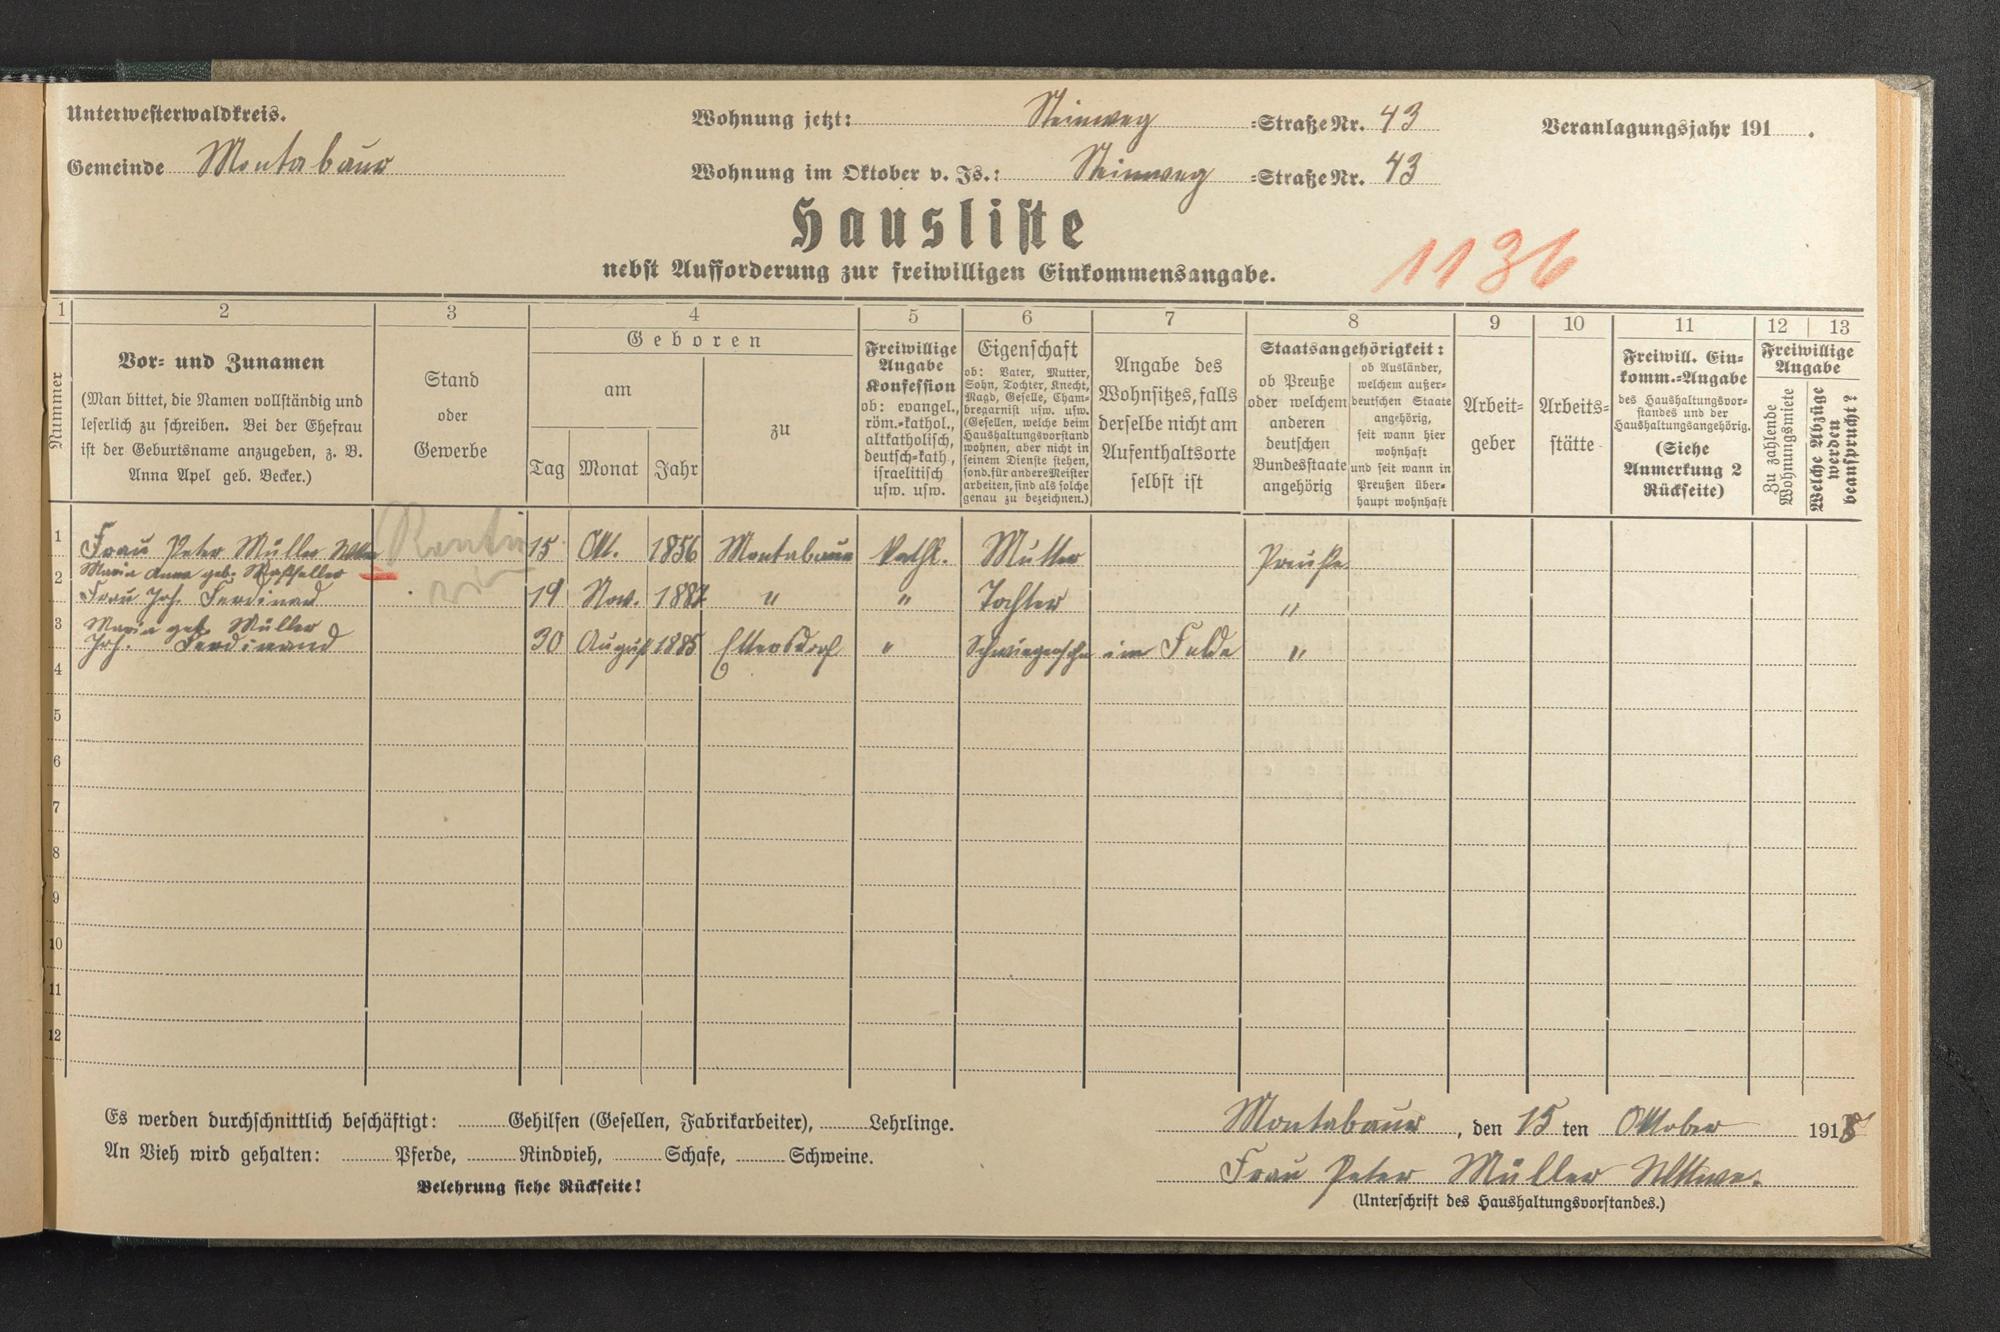 Unterwesterwaldkreis.
Gemeinde Montabaur
Wohnung jetzt: Steinweg =Straße Nr. 43
Wohnung im Oktober v. Js.: Steinweg =Straße Nr. 43
Veranlagungsjahr 191 .
Hausliste
nebst Aufforderung zur freiwilligen Einkommensangabe.
1136
1 2 3 4 5 6 7 8 9 10 11 12 13
Nummer
Vor- und Zunamen
(Man bittet, die Namen vollständig und
leserlich zu schreiben. Bei der Ehefrau
ist der Geburtsname anzugeben, z. B.
Anna Apel geb. Becker.)
Stand
oder
Gewerbe
Geboren
am
Tag Monat Jahr
zu
Freiwillige
Angabe
Konfession
ob: evangel.,
röm.=kathol.,
altkatholisch,
deutsch=kath.,
israelitisch
usw. usw.
Eigenschaft
ob: Vater, Mutter,
Sohn, Tochter, Knecht,
Magd, Geselle, Cham-
bregarnist usw. usw.
(Gesellen, welche beim
Haushaltungsvorstand
wohnen, aber nicht in
seinem Dienste stehen,
sond. für andere Meister
arbeiten, sind als solche
genau zu bezeichnen.)
Angabe des
Wohnsitzes, falls
derselbe nicht am
Aufenthaltsorte
selbst ist
Staatsangehörigkeit:
ob Preuße
oder welchem
anderen
deutschen
Bundesstaate
angehörig
ob Ausländer,
welchem außer-
deutschen Staate
angehörig,
seit wann hier
wohnhaft
und seit wann in
Preußen über-
haupt wohnhaft
Arbeit-
geber
Arbeits-
stätte
Freiwill. Ein-
komm.=Angabe
des Haushaltungsvor-
standes und der
Haushaltungsangehörig.
(Siehe
Anmerkung 2
Rückseite)
Freiwillige
Angabe
Zu zahlende
Wohnungsmiete
Welche Abzüge
werden
beansprucht?
1 Frau Peter Müller Wtw 15 Okt. 1856 Montabaur kath. Mutter Preuße
Maria Anna geb.
2 Frau Joh. Ferdinand 19 Nov. 1887 " " Tochter "
Maria geb. Müller
3 Joh. Ferdinand 30 August 1885 Ettersdorf " Schwiegersohn im Felde "
4
5
6
7
8
9
10
11
12
Es werden durchschnittlich beschäftigt: Gehilfen (Gesellen, Fabrikarbeiter), Lehrlinge.
An Vieh wird gehalten: Pferde, Rindvieh, Schafe, Schweine.
Belehrung siehe Rückseite!
Montabaur, den 15 ten Oktober 1918
Frau Peter Müller Wttwe.
(Unterschrift des Haushaltungsvorstandes.)